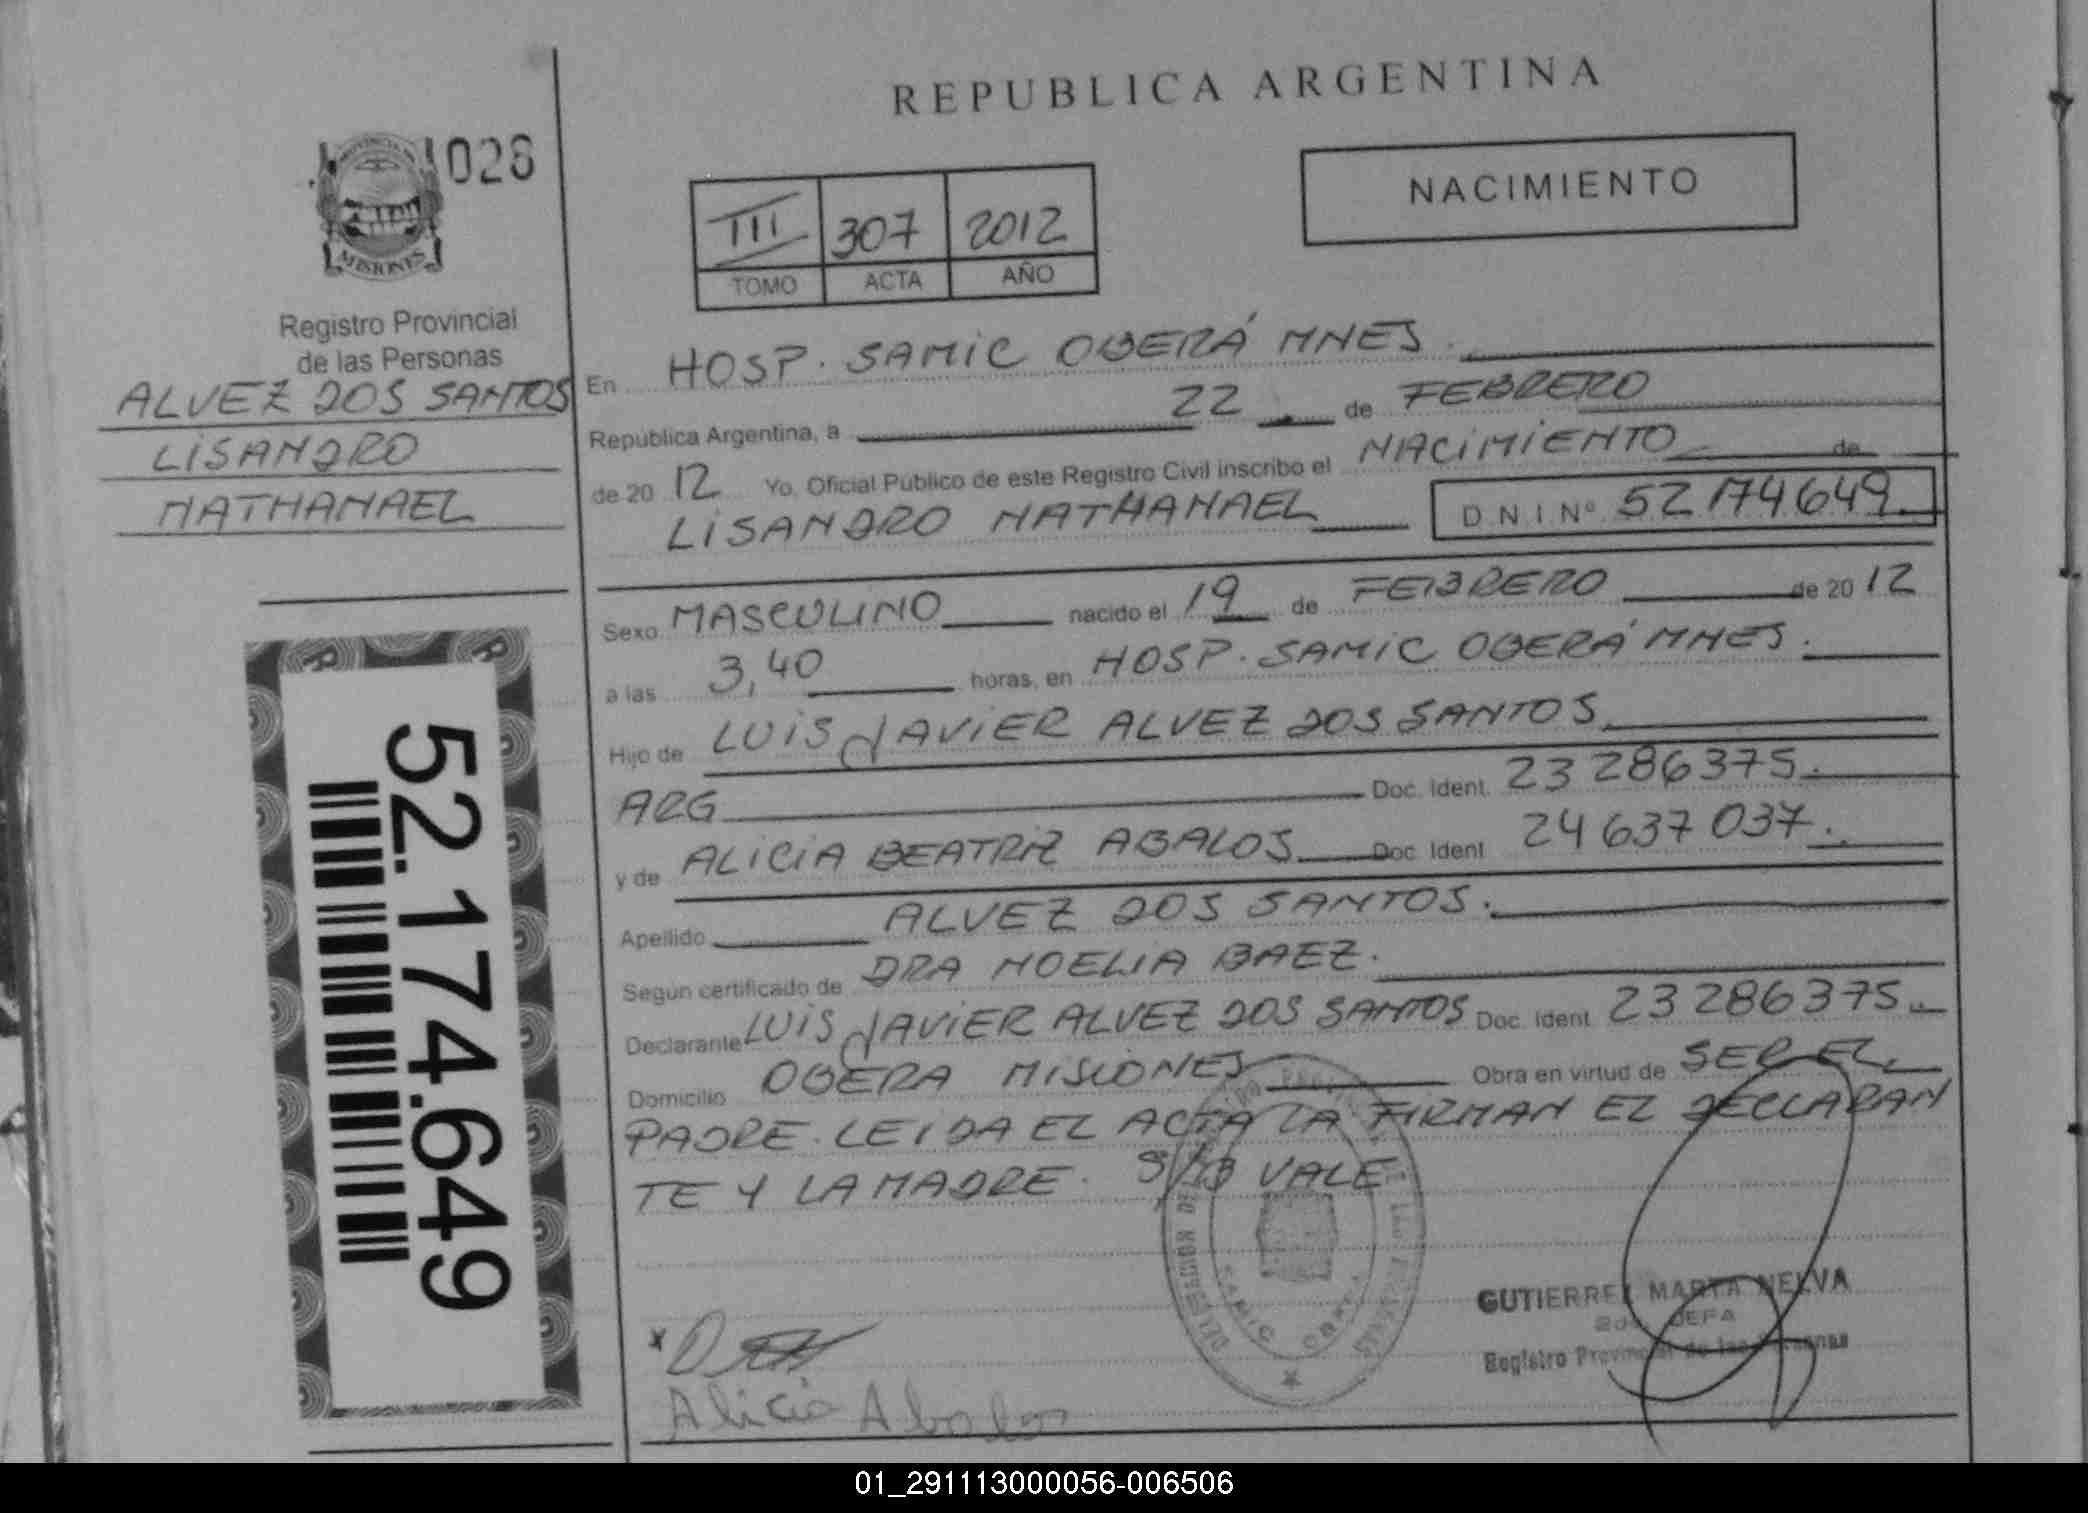 REPUBLICA ARGENTINA
028
NACIMIENTO
III 307 2012
TOMO ACTA AÑO
MISIONES
Registro Provincial
de las Personas
ALVEZ DOS SANTOS
LISANDRO
NATHANAEL
52.174.649
En HOSP. SAMIC OBERÁ MNES.
República Argentina, a 22 de FEBRERO
de 20 12 Yo, Oficial Público de este Registro Civil inscribo el NACIMIENTO de
LISANDRO NATHANAEL D N I Nº 52174649
Sexo MASCULINO nacido el 19 de FEBRERO de 20 12
a las 3,40 horas, en HOSP. SAMIC OBERÁ MNES.
Hijo de LUIS JAVIER ALVEZ DOS SANTOS
ARG Doc. Ident. 23286375.
y de ALICIA BEATRIZ ABALOS Doc. Ident 24637037.
Apellido ALVEZ DOS SANTOS.
Según certificado de DRA NOELIA BAEZ.
Declarante LUIS JAVIER ALVEZ DOS SANTOS Doc. Ident 23286375.
Domicilio OBERA MISIONES Obra en virtud de SER EL
PADRE. LEIDA EL ACTA LA FIRMAN EL DECLARAN
TE Y LA MADRE. S/B VALE
GUTIERREZ MARTA NELVA
2da. JEFA
Registro Provincial de las Personas
Alicia Abalos
01_291113000056-006506